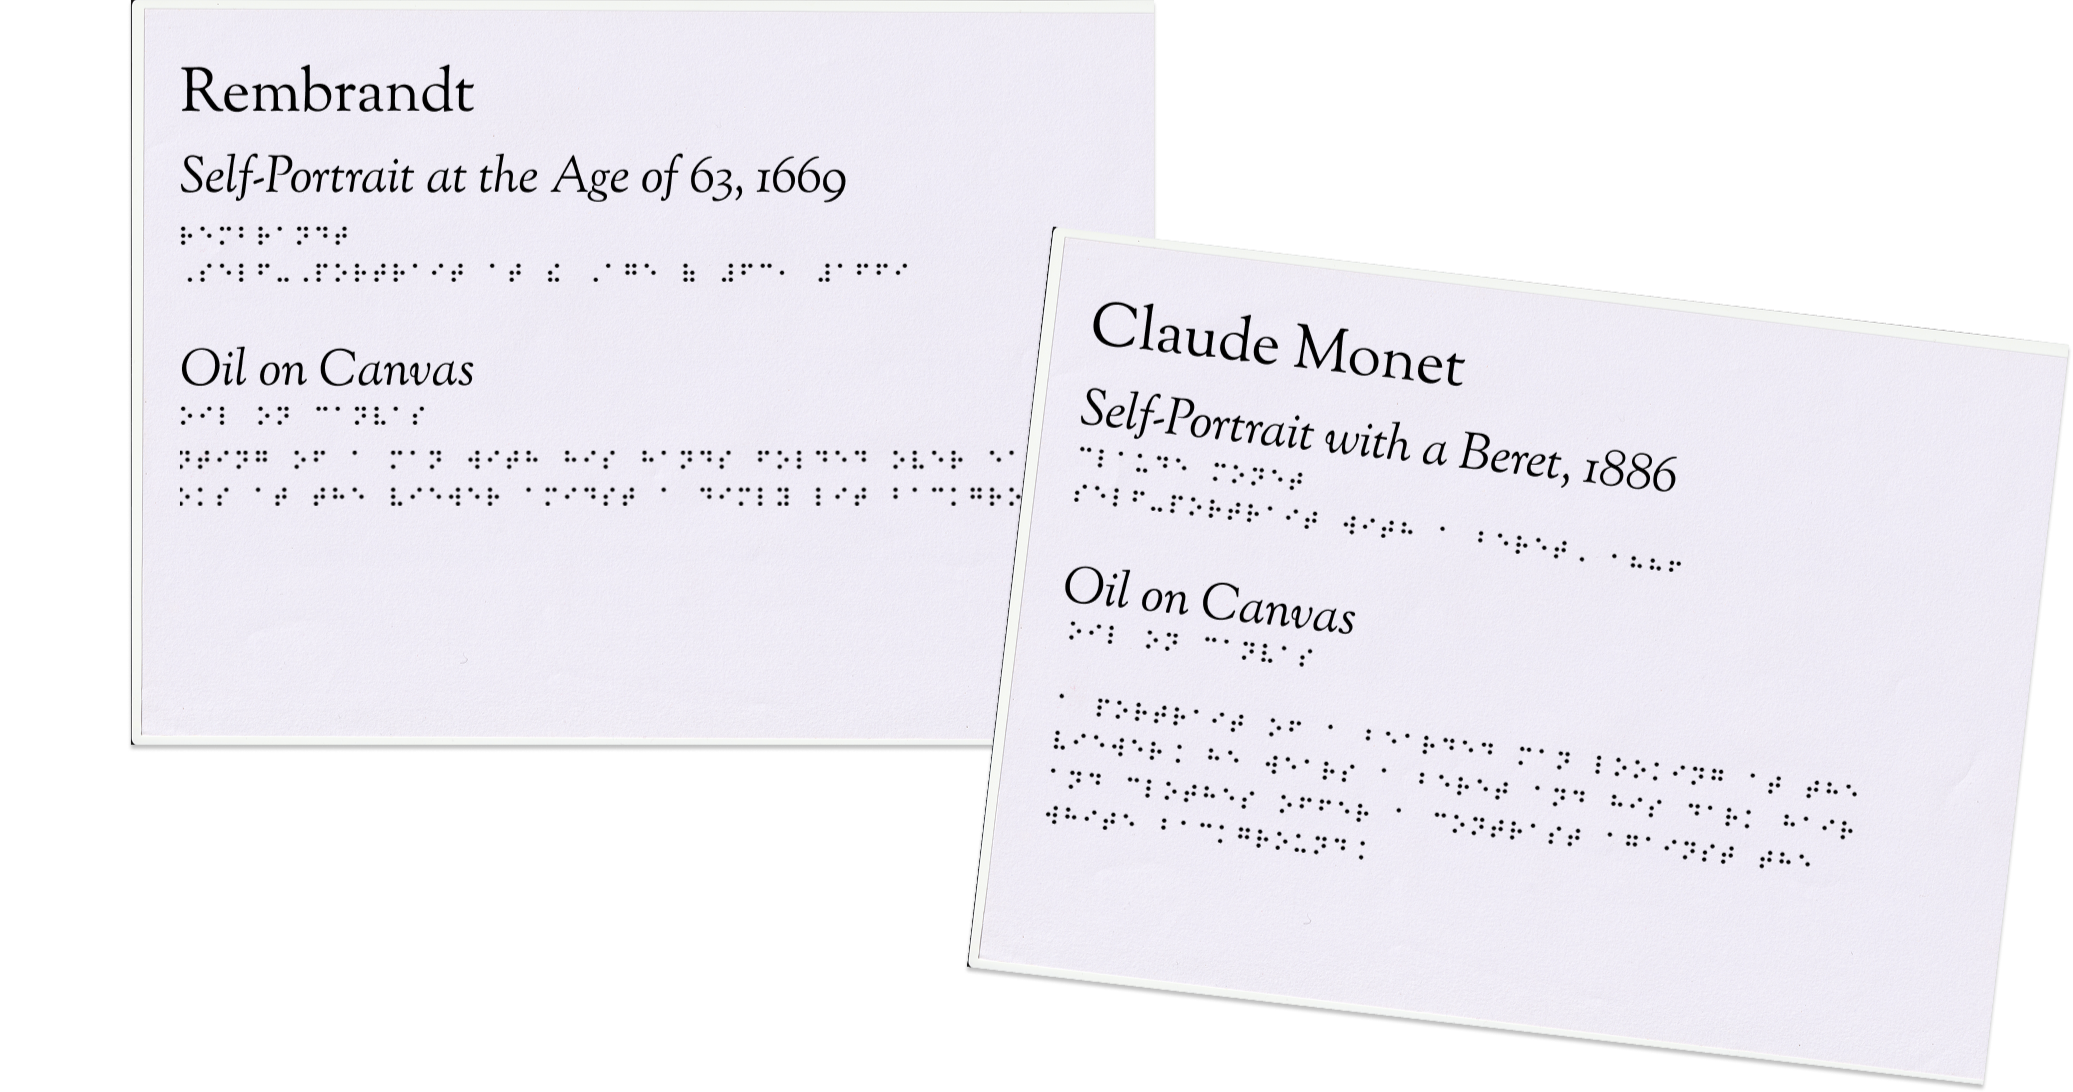 Rembrandt
Self-Portrait at the Age of 63, 1669
⠗⠑⠍⠃⠗⠁⠝⠙⠞
⠠⠎⠑⠇⠋⠤⠠⠏⠕⠗⠞⠗⠁⠊⠞ ⠁⠞ ⠮ ⠠⠁⠛⠑ ⠷ ⠼⠋⠉⠂ ⠼⠁⠋⠋⠊
Oil on Canvas
⠕⠊⠇ ⠕⠝ ⠉⠁⠝⠧⠁⠎
⠝⠞⠊⠝⠛ ⠕⠋ ⠁ ⠍⠁⠝ ⠺⠊⠞⠓ ⠓⠊⠎ ⠓⠁⠝⠙⠎ ⠋⠕⠇⠙⠑⠙ ⠕⠧⠑⠗ ⠑⠁
⠕⠅⠎ ⠁⠞ ⠞⠓⠑ ⠧⠊⠑⠺⠑⠗ ⠁⠍⠊⠙⠎⠞ ⠁ ⠙⠊⠍⠇⠽ ⠇⠊⠞ ⠃⠁⠉⠅⠛⠗⠕
Claude Monet
Self-Portrait with a Beret, 1886
⠉⠇⠁⠥⠙⠑ ⠍⠕⠝⠑⠞
⠎⠑⠇⠋⠤⠏⠕⠗⠞⠗⠁⠊⠞ ⠺⠊⠞⠓ ⠁ ⠃⠑⠗⠑⠞⠠ ⠁⠓⠓⠋
Oil on Canvas
⠕⠊⠇ ⠕⠝ ⠉⠁⠝⠧⠁⠎
⠁ ⠏⠕⠗⠞⠗⠁⠊⠞ ⠕⠋ ⠁ ⠃⠑⠁⠗⠙⠑⠙ ⠍⠁⠝ ⠇⠕⠕⠅⠊⠝⠛ ⠁⠞ ⠞⠓⠑
⠧⠊⠑⠺⠑⠗⠨ ⠓⠑ ⠺⠑⠁⠗⠎ ⠁ ⠃⠑⠗⠑⠞ ⠁⠝⠙ ⠓⠊⠎ ⠙⠁⠗⠅ ⠓⠁⠊⠗
⠁⠝⠙ ⠉⠇⠕⠞⠓⠑⠎ ⠕⠋⠋⠑⠗ ⠁ ⠉⠕⠝⠞⠗⠁⠎⠞ ⠁⠛⠁⠊⠝⠎⠞ ⠞⠓⠑
⠺⠓⠊⠞⠑ ⠃⠁⠉⠅⠛⠗⠕⠥⠝⠙⠨